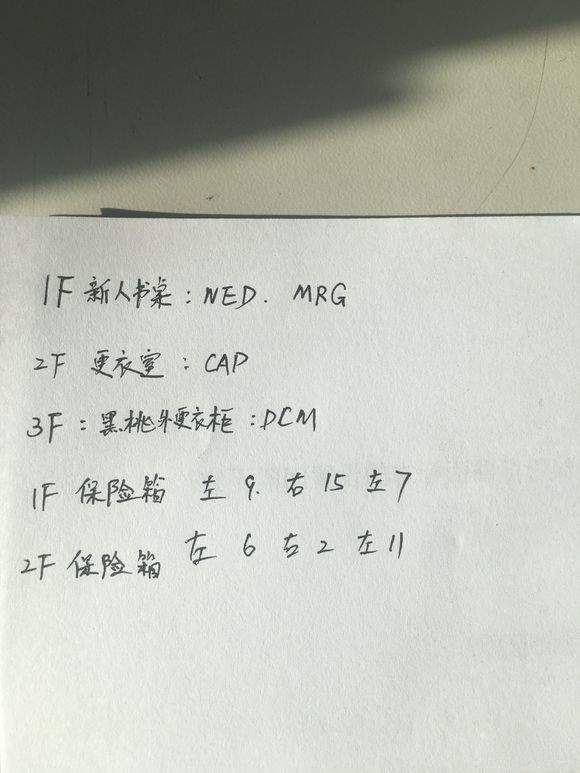 1F 新人书桌：NED. MRG
2F 更衣室：CAP
3F：黑桃外更衣柜：DCM
1F 保险箱 左 9. 右 15 左 7
2F 保险箱 左 6 右 2 左 11